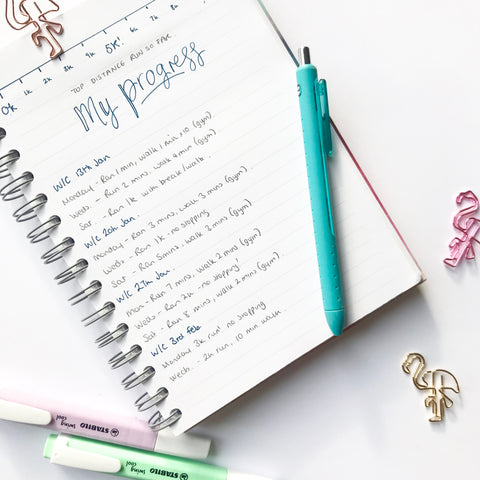 0k 1k 2k 3k 4k 5k! 6k 7k 8k
TOP DISTANCE RUN SO FAR
My progress
W/C 13th Jan
Monday - Ran 1 min, walk 1 min x10 (gym)
Weds - Ran 2 mins, walk 4 min (gym).
Sat - Ran 1k with break/walk.
W/C 20th Jan.
Monday - Ran 3 mins, walk 3 mins (gym)
Weds - Ran 1k - no stopping
Sat - Ran 5mins, walk 2 mins (gym)
W/C 27th Jan.
Mon - Ran 7 mins, walk 2 mins (gym)
Weds - Ran 2k - no stopping!
Sat - Ran 8 mins, walk 2 mins (gym).
W/C 3rd Feb
Monday 3k run! no stopping
Weds. - 2k run, 10 min walk
STABILO swing cool
STABILO swing cool